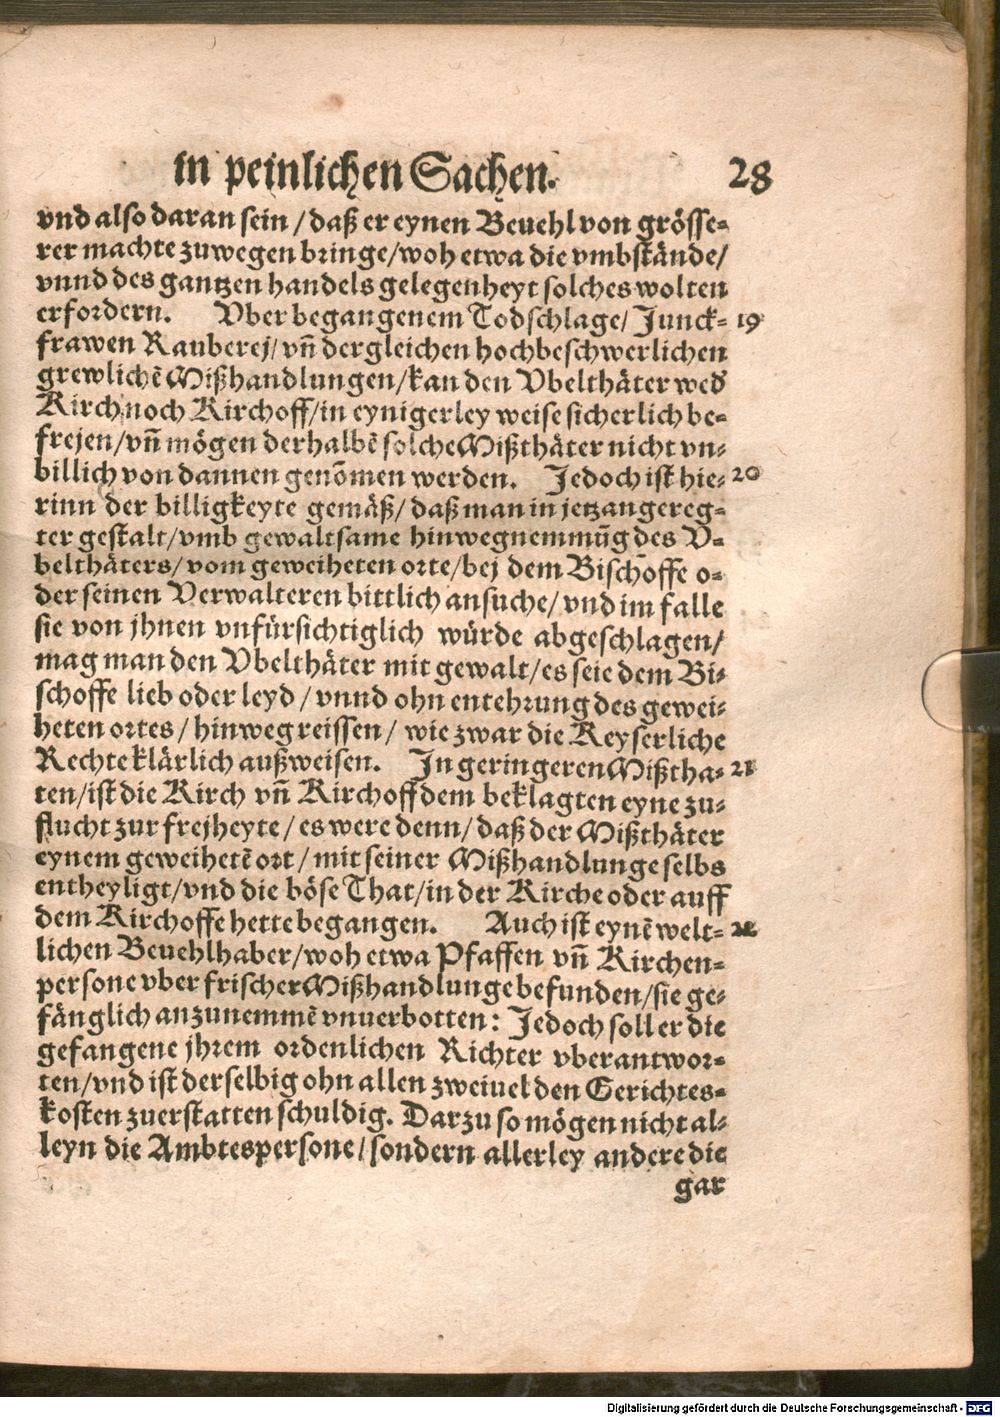 in peinlichen Sachen. 28
vnd also daran sein / daß er eynen Beuehl von grösse⸗
rer machte zuwegen bringe/woh etwa die vmbstände/
vnnd des gantzen handels gelegenheyt solches wolten
erfordern. Vber begangenem Todschlage/ Junck⸗ 19
frawen Rauberej/vn̄ dergleichen hochbeschwerlichen
grewlichē Mißhandlungen/kan den Vbelthäter wed̕
Kirch noch Kirchoff/in eynigerley weise sicherlich be⸗
frejen/vn̄ mögen derhalbē solche Mißthäter nicht vn⸗
billich von dannen genōmen werden. Jedoch ist hie⸗ 20
rinn der billigkeyte gemäß/ daß man in jetzangereg⸗
ter gestalt/vmb gewaltsame hinwegnemmūg des V⸗
belthäters/ vom geweiheten orte/bej dem Bischoffe o⸗
der seinen Verwalteren bittlich ansuche/ vnd im falle
sie von jhnen vnfürsichtiglich würde abgeschlagen/
mag man den Vbelthäter mit gewalt/es seie dem Bi⸗
schoffe lieb oder leyd / vnnd ohn entehrung des gewei⸗
heten ortes/ hinweg reissen / wie zwar die Keyserliche
Rechte klärlich außweisen. In geringeren Mißtha⸗ 21
ten/ist die Kirch vn̄ Kirchoff dem beklagten eyne zu⸗
flucht zur frejheyte / es were denn/ daß der Mißthäter
eynem geweihetē ort / mit seiner Mißhandlunge selbs
entheyligt/vnd die böse That/in der Kirche oder auff
dem Kirchoffe hette begangen. Auch ist eynē welt⸗ 22
lichen Beuehlhaber/woh etwa Pfaffen vn̄ Kirchen⸗
persone vber frischer Mißhandlunge befunden/sie ge⸗
fänglich anzunemmē vnuerbotten: Jedoch soll er die
gefangene jhrem ordenlichen Richter vberantwor⸗
ten/vnd ist derselbig ohn allen zweiuel den Gerichtes⸗
kosten zuerstatten schuldig. Darzu so mögen nicht al⸗
leyn die Ambtespersone/sondern allerley andere die
gar
Digitalisierung gefördert durch die Deutsche Forschungsgemeinschaft - DFG